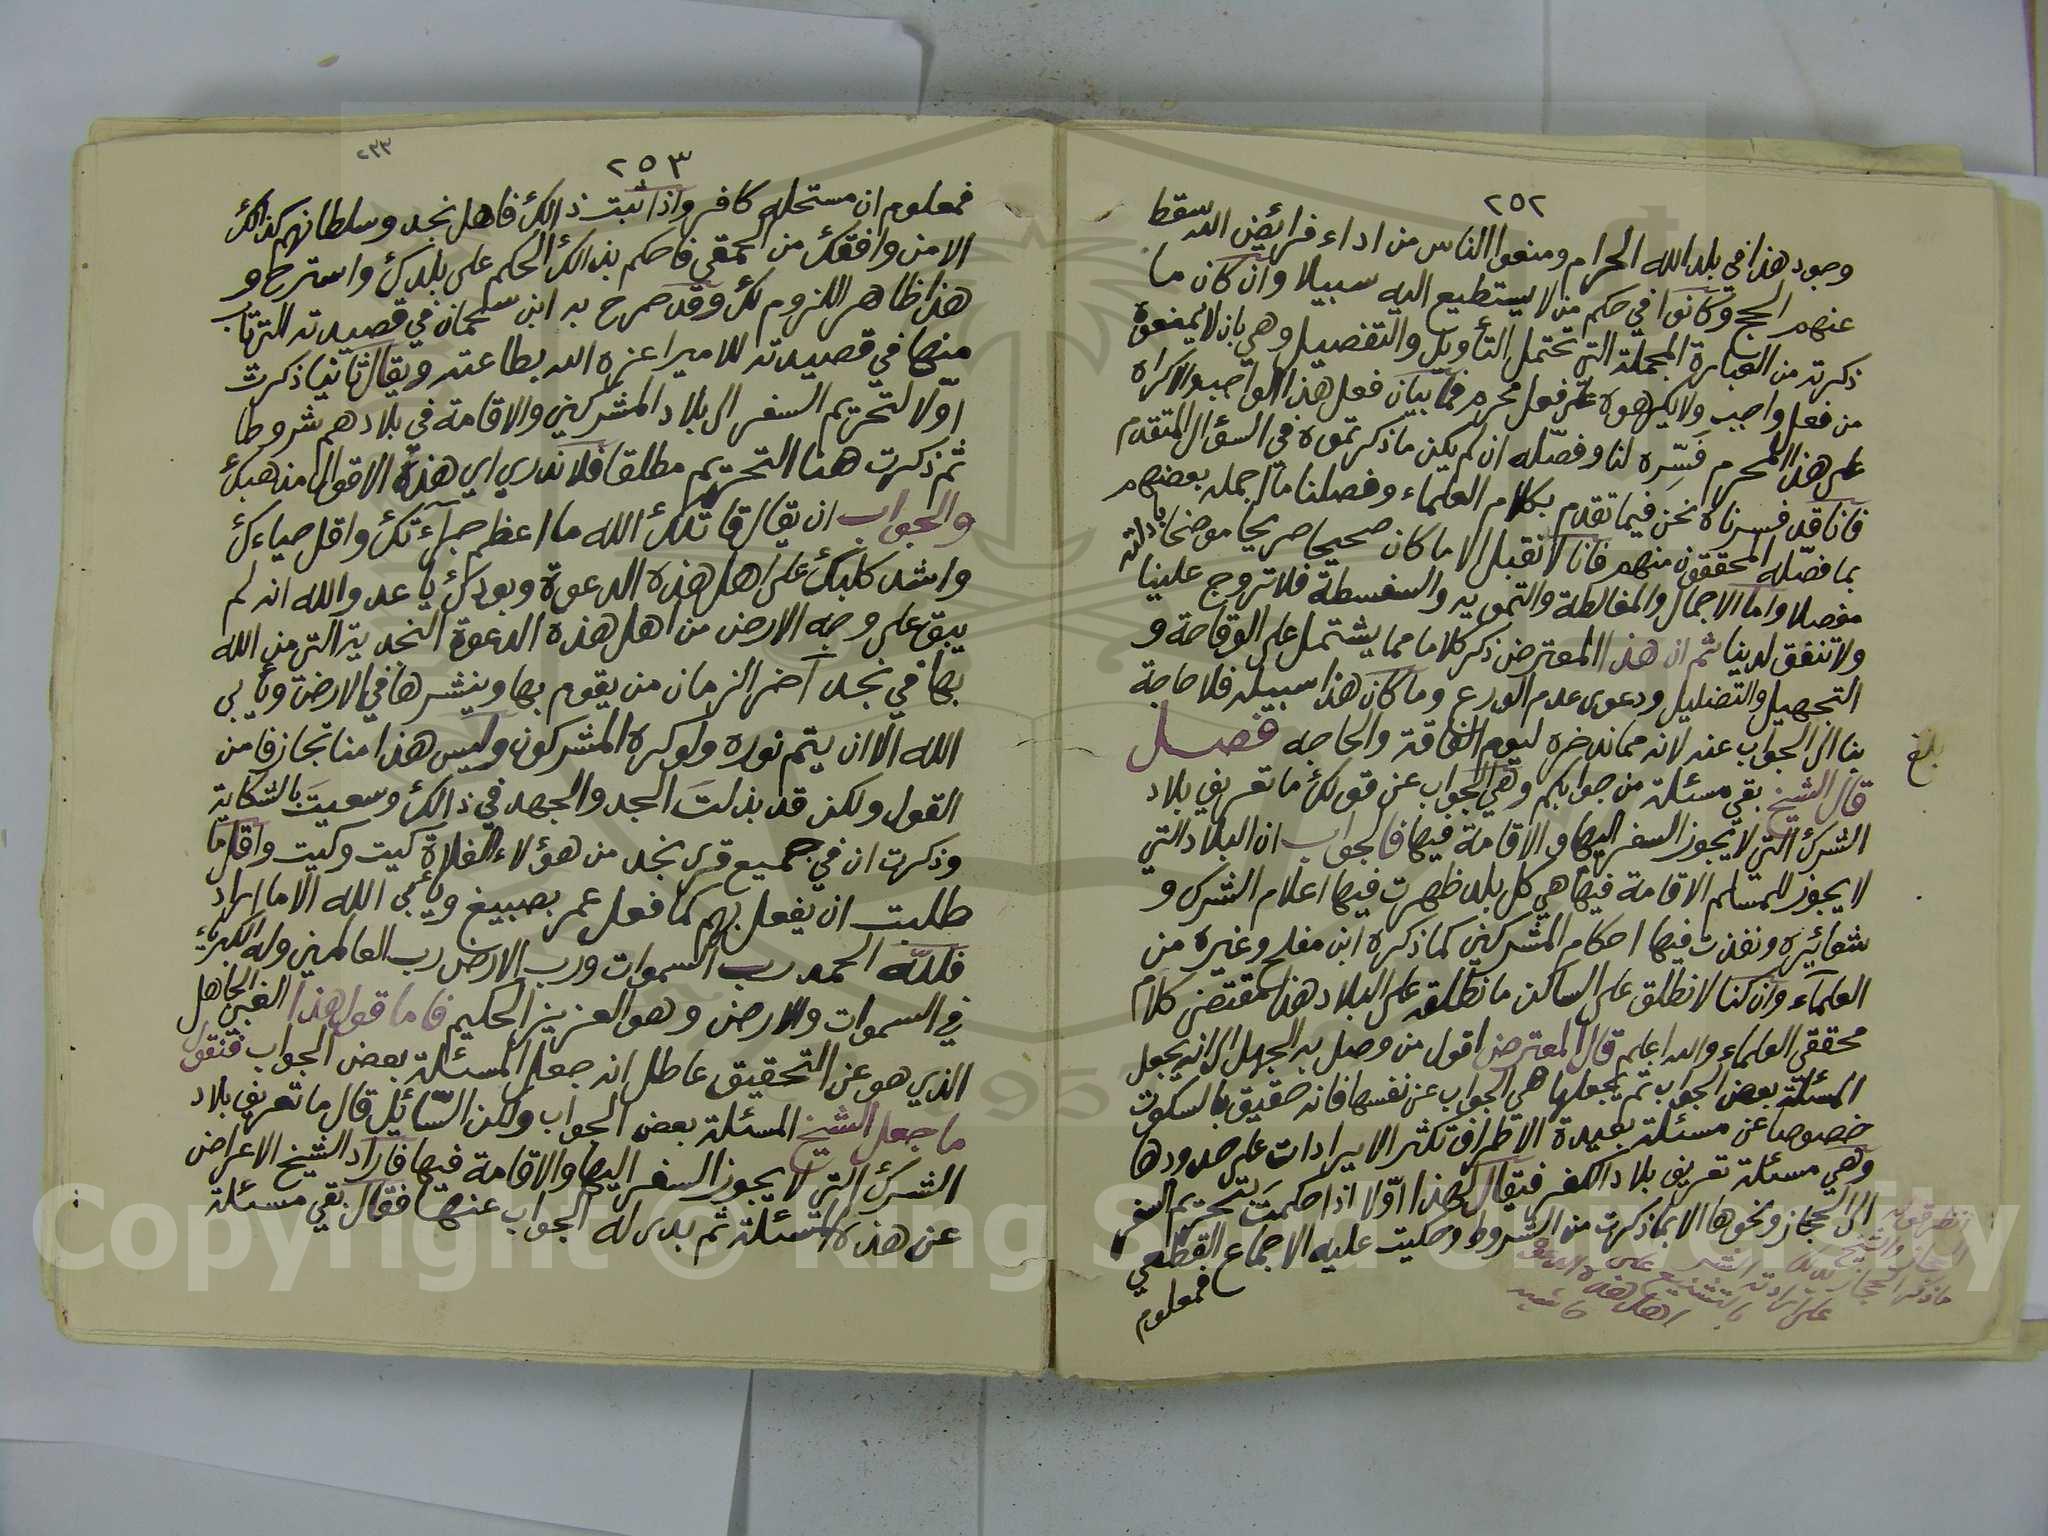 ٢٥٢
وجود هذا في بلد الله الحرام ومنعوا الناس من اداء فرائض الله سقط
عنهم الحج وكانوا في حكم من لا يستطيع اليه سبيلا وان كان ما
ذكرته من العبارة المجملة التي تحتمل التأويل والتفصيل وهي بان لا يمنعوه
من فعل واجب ولا يكرهوه على فعل محرم فما بيان فعل هذا الواجب والاكراه
على هذا المحرم فسّره لنا وفصّله ان لم يكن ما ذكرتموه في السؤال المتقدم
فانا قد فسرناه نحن فيما تقدم بكلام العلماء وفصلنا ما اجمله بعضهم
بما فصّله المحققون منهم فانا لا نقبل الا ما كان صحيحا صريحا موضحا بادلته
مفصلا واما الاجمال والمغالطة والتمويه والسفسطة فلا تروج علينا
ولا تنفق لدينا ثم ان هذا المعترض ذكر كلاما مما يشتمل على الوقاحة و
التجهيل والتضليل ودعوى عدم الورع وما كان هذا سبيله فلا حاجة
بنا الى الجواب عنه لانه مما ندخره ليوم الفاقة والحاجه فصل
بلغ
قال الشيخ بقي مسئلة من جوابكم وهي الجواب عن قولك ما تعريف بلاد
الشرك التي لا يجوز السفر اليها والاقامة فيها فالجواب ان البلاد التي
لا يجوز للمسلم الاقامة فيها هي كل بلد ظهرت فيها اعلام الشرك و
شعائيره ونفذت فيها احكام المشركين كما ذكره ابن مفلح وغيره من
العلماء وان كنا لا نطلق على الساكن ما نطلقه على البلاد هذا مقتضى كلام
محققي العلماء والله اعلم قال المعترض اقول من وصل به الجهل الى انه يجعل
المسئلة بعض الجواب ثم يجعلها هي الجواب عن نفسها فانه حقيق بالسكوت
خصوصا عن مسئلة بعيدة الاطراف تكثر الايرادات على حدودها
وهي مسئلة تعريف بلاد الكفر فيقال لهذا اوّلا اذا حكمت بتحريم السفر
الى الحجاز ونحوها الا بما ذكرت من الشروط وحكيت عليه الاجماع القطعي
فمعلوم
انظر قوله
٢٥٣
٢٣٣
فمعلوم ان مستحله كافر واذا ثبت ذالك فاهل نجد وسلطانهم كذالك
الا من وافقك من الحمقى فاحكم بذالك الحكم على بلدك واسترح و
هذا ظاهر اللزوم لك وقد صرح به ابن سحمان في قصيدته التي تاب
منها في قصيدته للامير اعزه الله بطاعته ويقال ثانيا ذكرت
اوّلا لتحريم السفر الى بلاد المشركين والاقامة في بلادهم شروطا
ثم ذكرت هنا التحريم مطلقا فلا ندري اي هذه الاقوال مذهبك
والجواب ان يقال قاتلك الله ما اعظم جراءتك واقل حياءك
واشد كلبك على اهل هذه الدعوة وبعدك يا عدو الله انه لم
يبق على وجه الارض من اهل هذه الدعوة النجدية التي من الله
بها في نجد آخر الزمان من يقوم بها وينشرها في الارض ويأبى
الله الا ان يتم نوره ولو كره المشركون وليس هذا منا تجازفا من
القول ولكن قد بذلت الجد والجهد في ذالك وسعيت بالشكاية
وذكرت ان في جميع قرى نجد من هؤلاء الغلاة كيت وكيت واقل ما
طلبت ان يفعل بهم كما فعل عمر بصبيغ ويأبى الله الا ما اراد
فللّه الحمد رب السموات ورب الارض رب العالمين وله الكبرياء
في السموات والارض وهو العزيز الحكيم فاما قول هذا الغبي الجاهل
الذي هو عن التحقيق عاطل انه جعل المسئلة بعض الجواب فنقول
ما جعل الشيخ المسئلة بعض الجواب ولكن السّائل قال ما تعريف بلاد
الشرك التي لا يجوز السفر اليها والاقامة فيها فاراد الشيخ الاعراض
عن هذه المسئلة ثم بدى له الجواب عنها فقال بقي مسئلة
Copyright © King Saud University